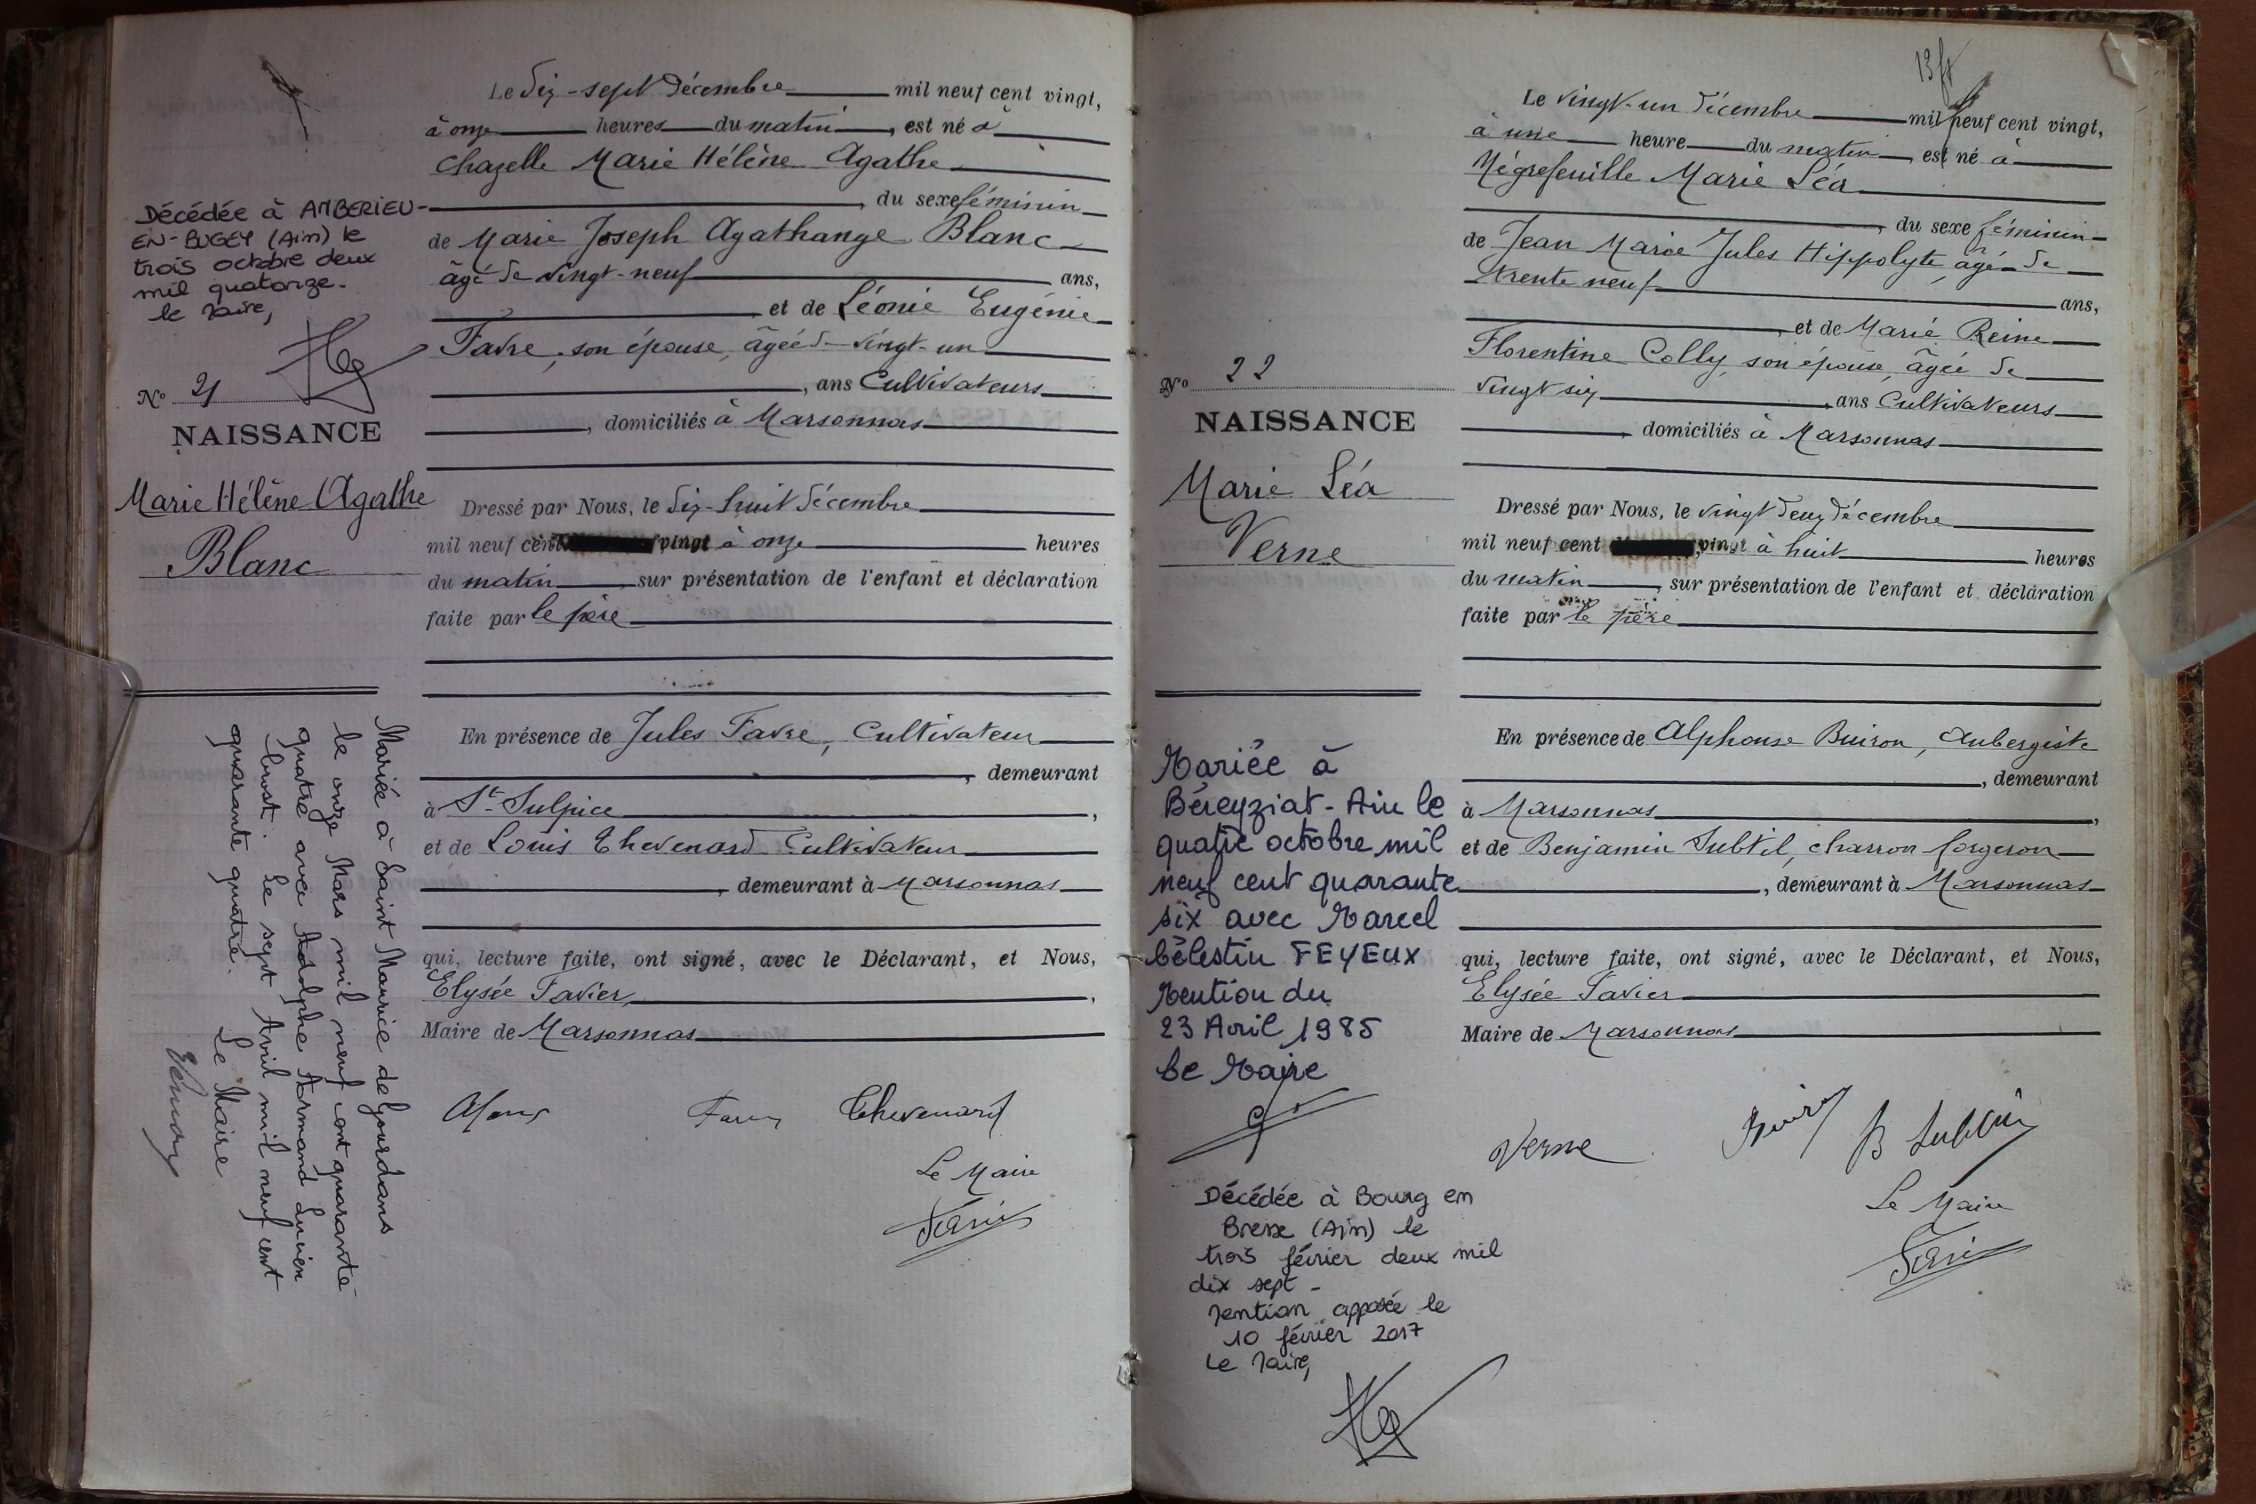 Le Dix-sept Décembre mil neuf cent vingt,
à onze heures du matin, est né à
Chazelle Marie Hélène Agathe
, du sexe féminin
de Marie Joseph Agathange Blanc
âgé de vingt-neuf ans,
et de Léonie Eugénie
Favre, son épouse, âgée de vingt-un
, ans Cultivateurs
, domiciliés à Marsonnas
Dressé par Nous, le dix-huit Décembre
mil neuf cent vingt à onze heures
du matin, sur présentation de l'enfant et déclaration
faite par le père
En présence de Jules Favre, Cultivateur
, demeurant
à St Sulpice,
et de Louis Chevenard Cultivateur
, demeurant à Marsonnas
qui, lecture faite, ont signé, avec le Déclarant, et Nous,
Elysée Favier,
Maire de Marsonnas
Chevenard
Le Maire
Décédée à AMBERIEU-
EN-BUGEY (Ain) le
trois octobre deux
mil quatorze.
le Maire,
No 21
NAISSANCE
Marie Hélène Agathe
Blanc
Mariée à Saint Maurice de Gourdans
le onze Mars mil neuf cent quarante-
quatre avec Adolphe Armand Lucien
le sept Avril mil neuf cent
quarante quatre.
Le Maire
13
Le vingt-un Décembre mil neuf cent vingt,
à une heure du matin, est né à
Négrefeuille Marie Léa
, du sexe féminin
de Jean Marie Jules Hippolyte, âgé de
trente neuf ans,
, et de Marie Reine
Florentine Colly, son épouse, âgée de
vingt six, ans Cultivateurs
, domiciliés à Marsonnas
Dressé par Nous, le vingt deux Décembre
mil neuf cent vingt à huit heures
du matin, sur présentation de l'enfant et déclaration
faite par le père
En présence de Alphonse Buiron, Aubergiste
, demeurant
à Marsonnas,
et de Benjamin Subtil, charron forgeron
, demeurant à Marsonnas
qui, lecture faite, ont signé, avec le Déclarant, et Nous,
Elysée Favier
Maire de Marsonnas
Verne
B Subtil
Le Maire
No 22
NAISSANCE
Marie Léa
Verne
Mariée à
Béreyziat-Ain le
quatre octobre mil
neuf cent quarante
six avec Marcel
Célestin FEYEUX
Mention du
23 Avril 1985
Le Maire
Décédée à Bourg en
Bresse (Ain) le
trois février deux mil
dix sept -
Mention apposée le
10 février 2017
Le Maire,